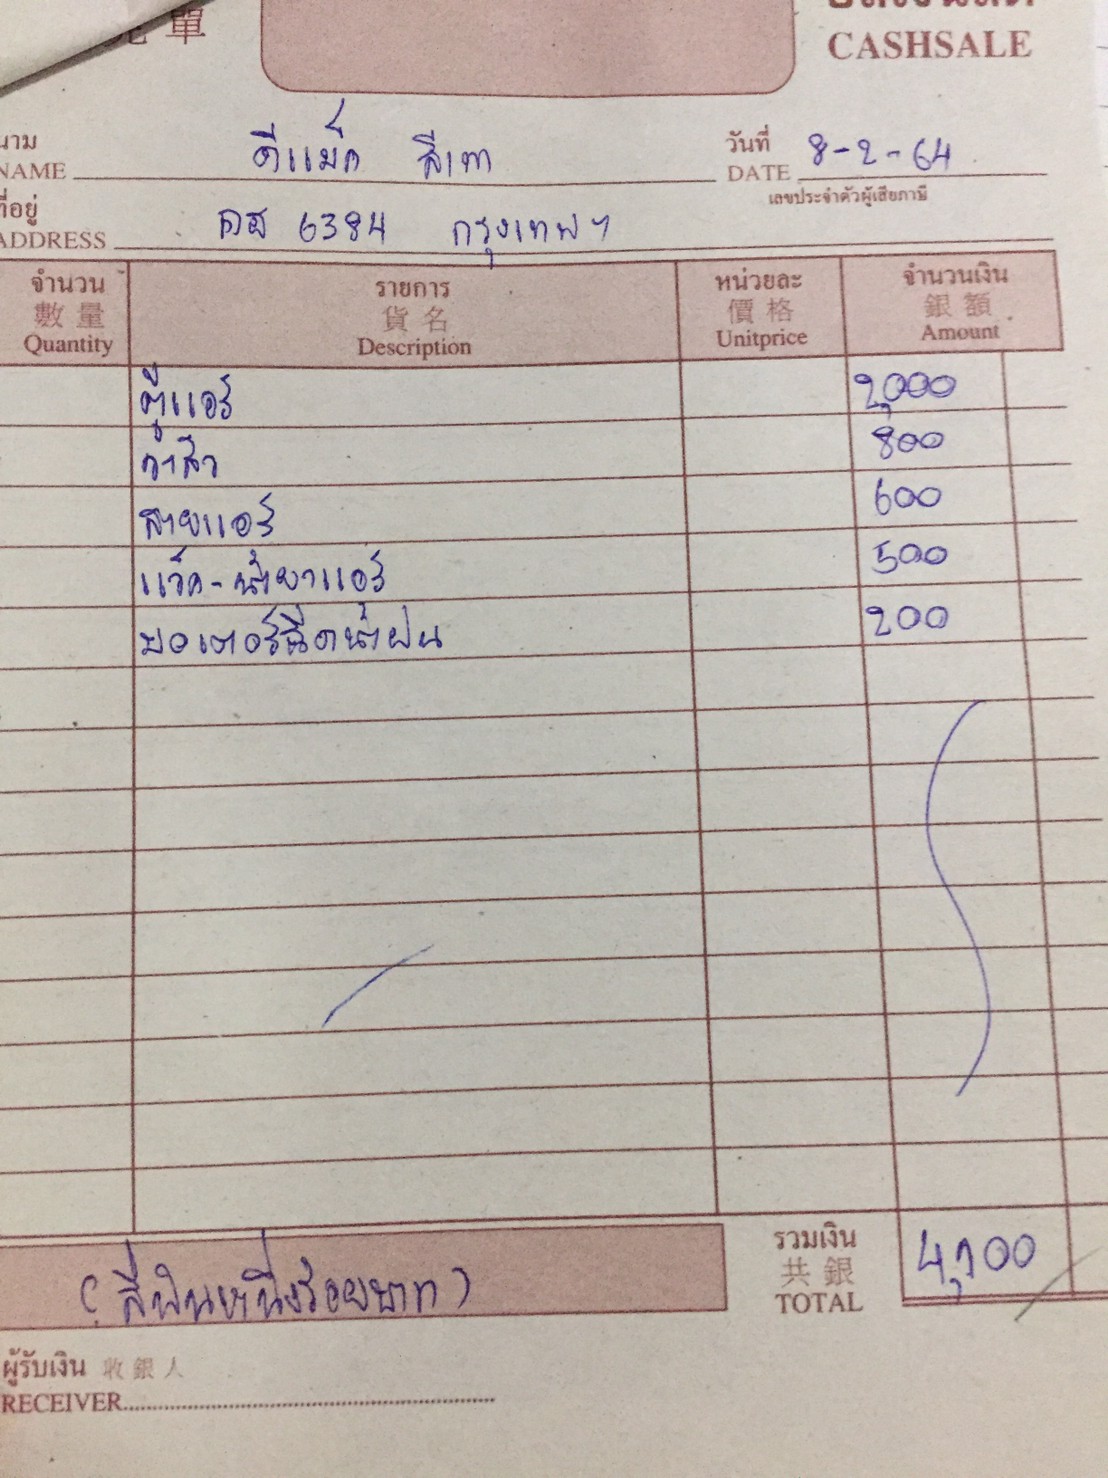 單
CASHSALE
นาม
NAME ดีแม็ค สีเทา
วันที่
DATE 8-2-64
เลขประจำตัวผู้เสียภาษี
ที่อยู่
ADDRESS 6384 กรุงเทพฯ
จำนวน รายการ หน่วยละ จำนวนเงิน
數量 貨名 價格 銀額
Quantity Description Unitprice Amount
ตู้แอร์ 2,000
วาล์ว 800
สายแอร์ 600
แว็ค-น้ำยาแอร์ 500
มอเตอร์ฉีดน้ำฝน 200
รวมเงิน
共銀
TOTAL 4,100
(สี่พันหนึ่งร้อยบาท)
ผู้รับเงิน 收銀人
RECEIVER